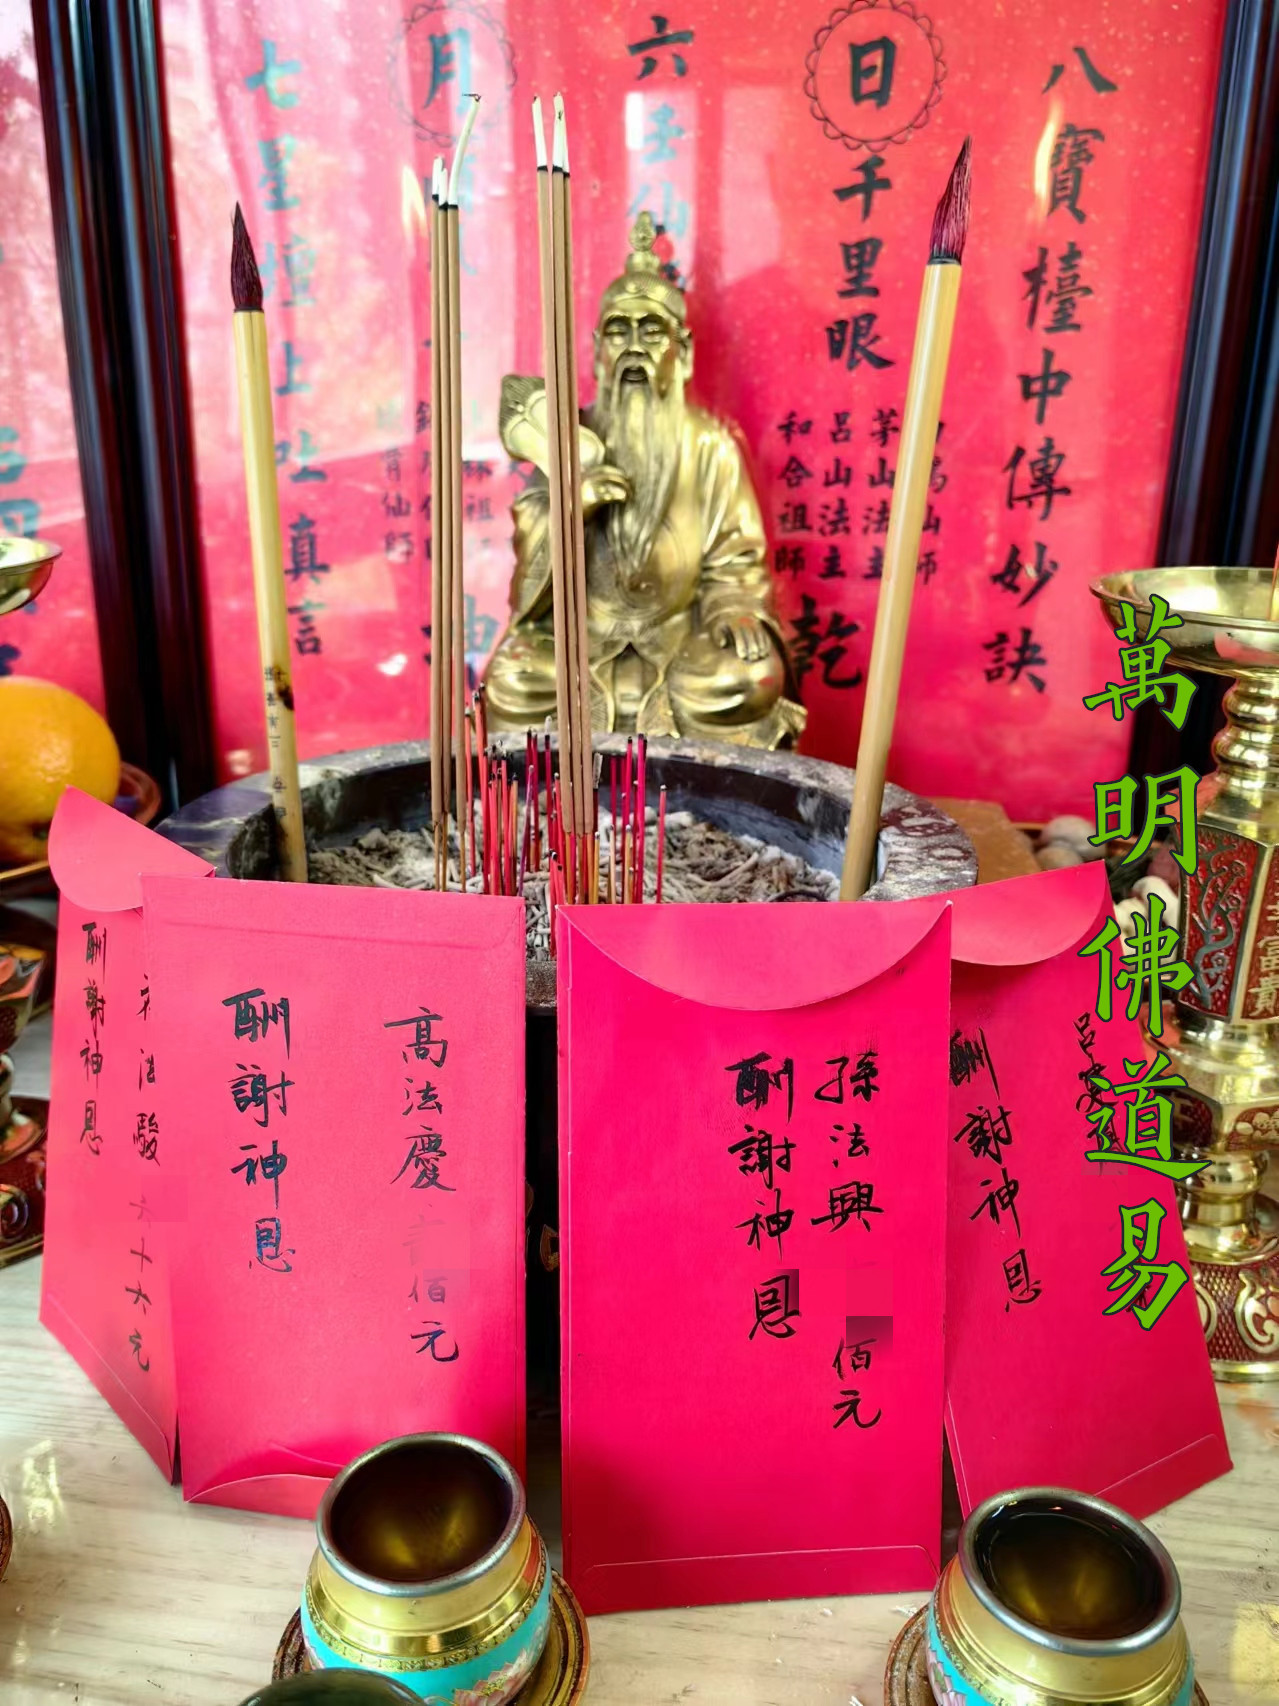 八寶檯中傳妙訣
日
千里眼
茅山法主
呂山法主
和合祖師
乾
六壬仙
月
七星壇上吐真言
萬明佛道易
酬謝神恩
呂
孫法興
佰元
酬謝神恩
高法慶
佰元
酬謝神恩
法駿
六十六元
酬謝神恩